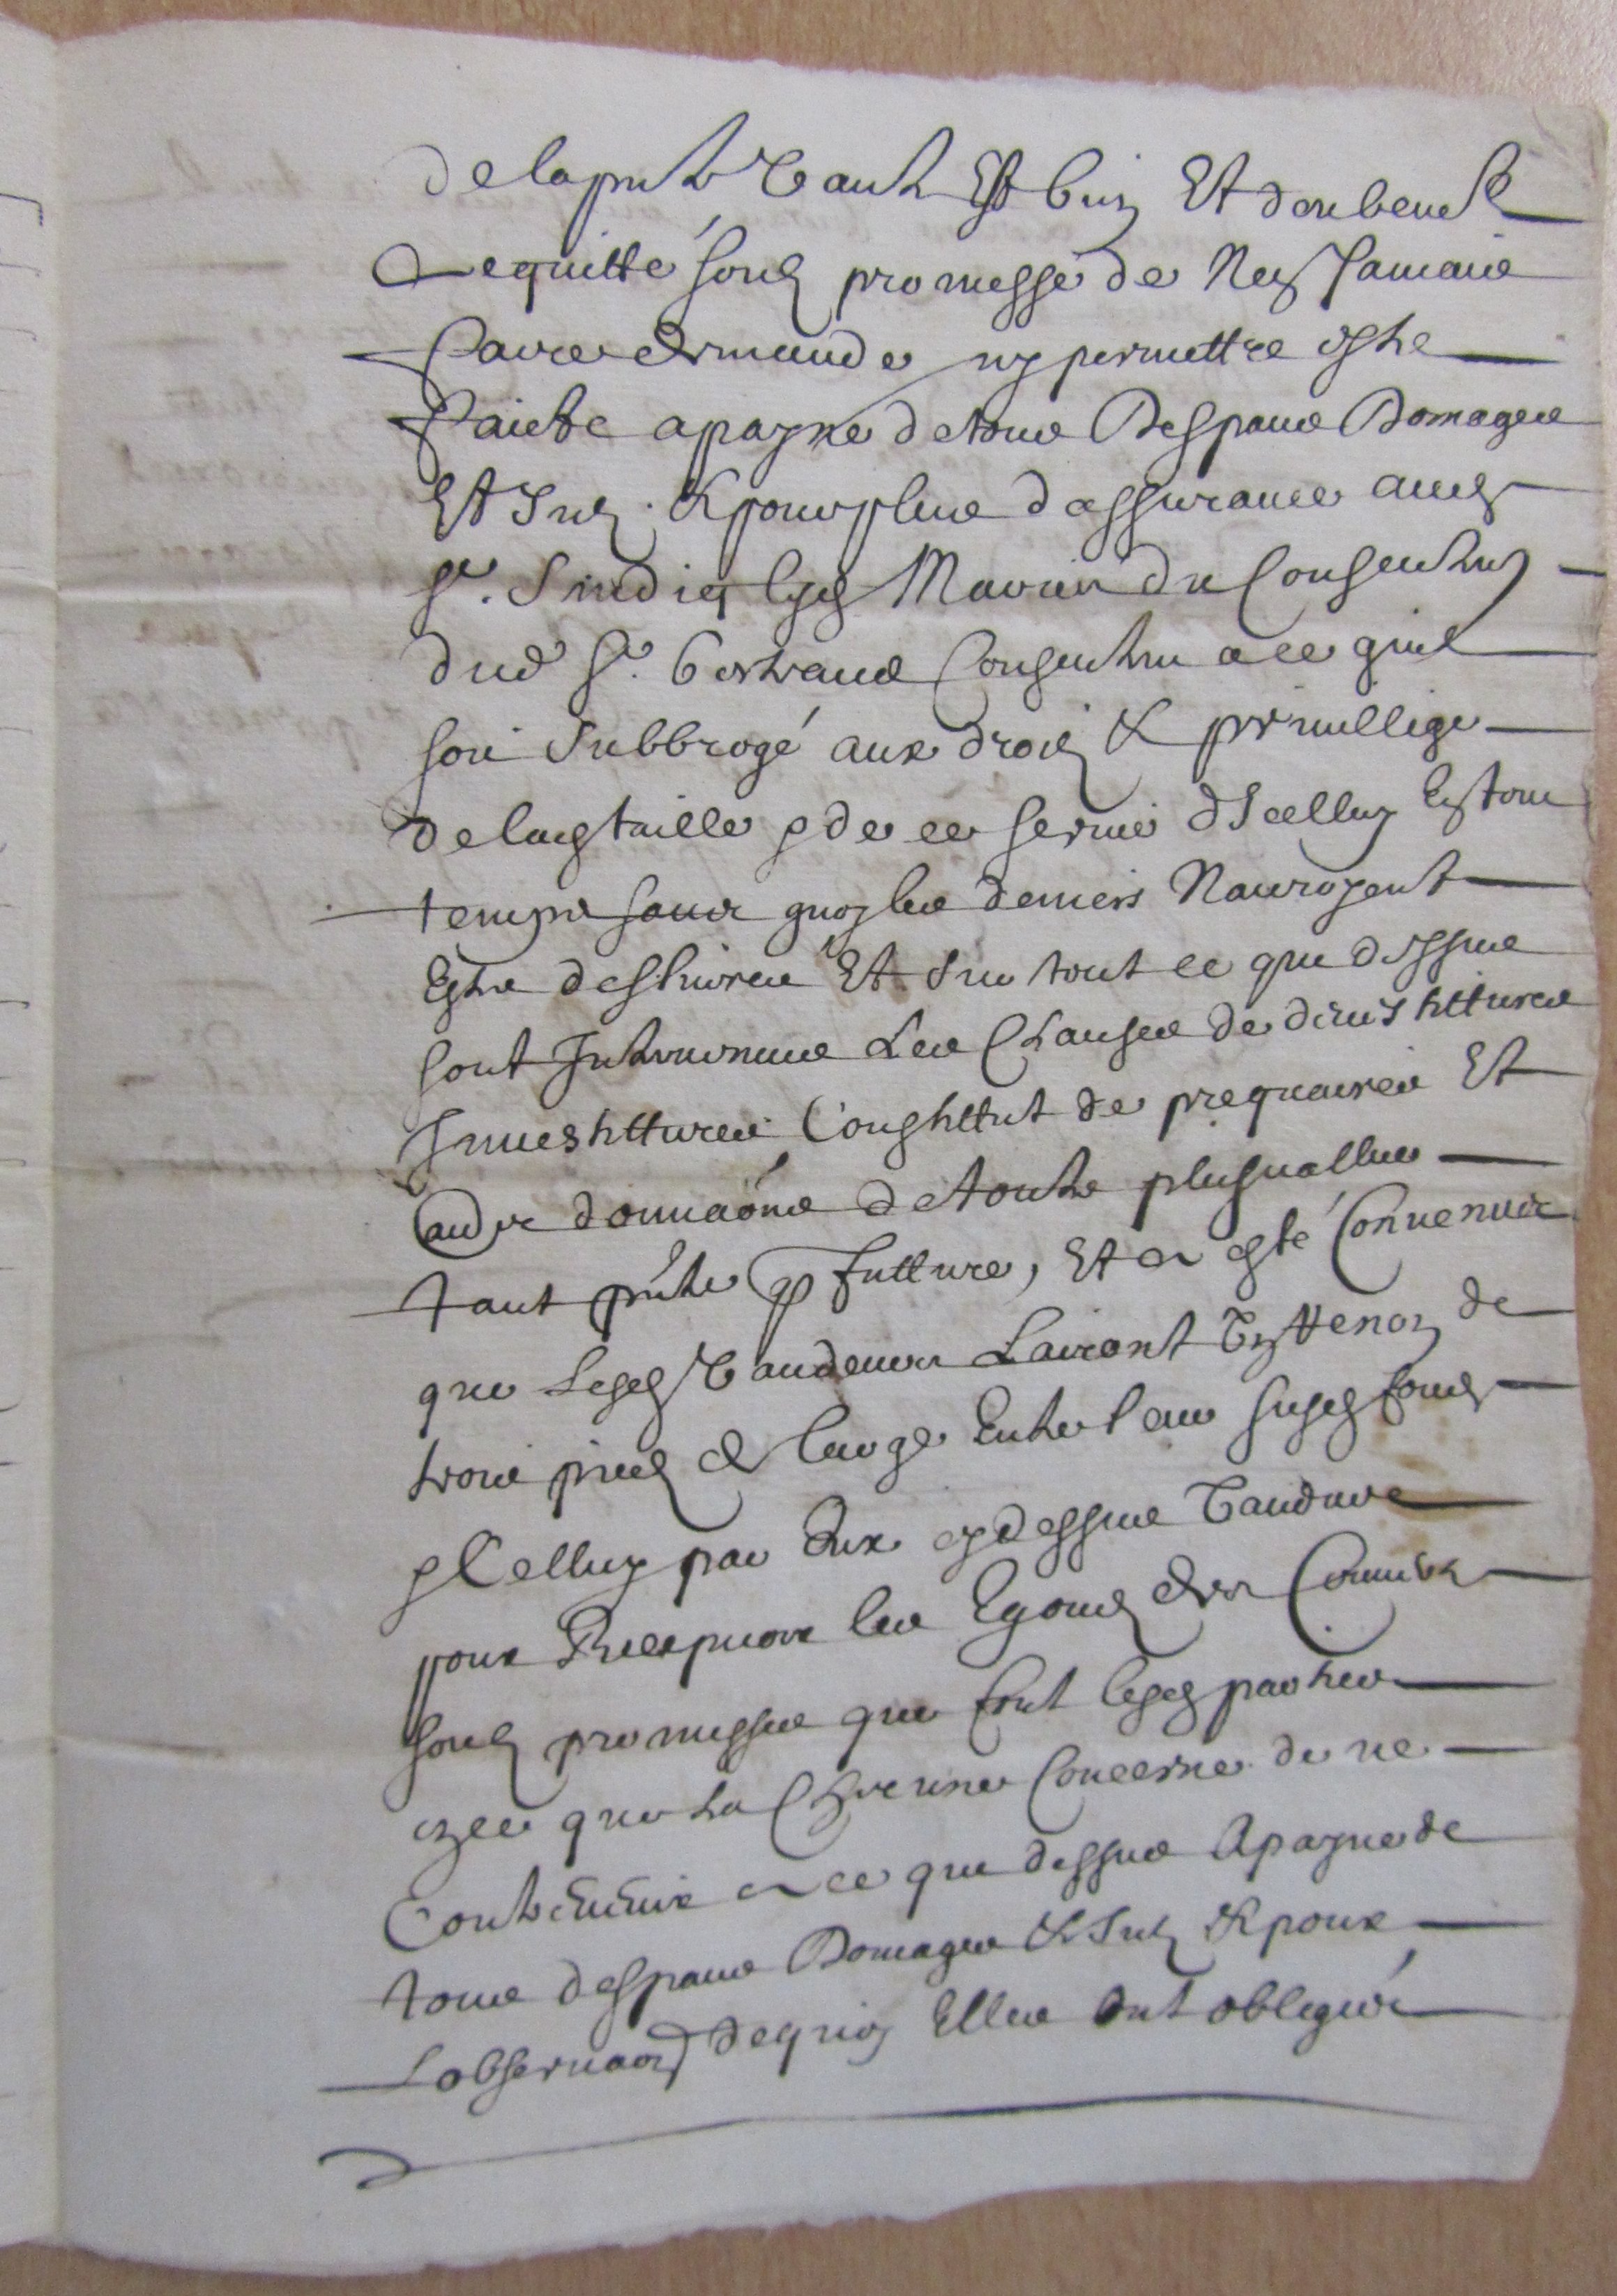 de la pnte vante Et bien Et deubement
acquitté soub promesse de Ney Jamais
faire demande ny permettre estre
faicte apayne de tous Despans Domages
Et Inl & pour plus d'assurance aud
Sr. Sindicq lesd Mariés du Consentemt
dud Sr. Bertrand Consentent a ce quil
soit Subbrogé aux droi & privillege
de lad taille p de ce servir d'Icelluy En tout
temps sauf quoy les deniers N'auroyent
Estre deslivres Et Sur tout ce que dessus
sont Intervenues Les Clauses de divestittures
Investittures Constittut de prequaires Et
aud donnaône de toute plusvallue
tant pnte q future, Et a esté Convenu
que Lesd Vandeurs Lairont
trois pied de large Entre leur susd fond
p Celluy par Eux cy dessus Vandu
pour les Egous du Couvert
soub promesse que font lesd parties
ce que la Chescune Concerne de ne
Contrevenir a ce que dessus Apayne de
tous despans Domages & Inl & pour
Lobservaôn dequoy Elles Ont obligés